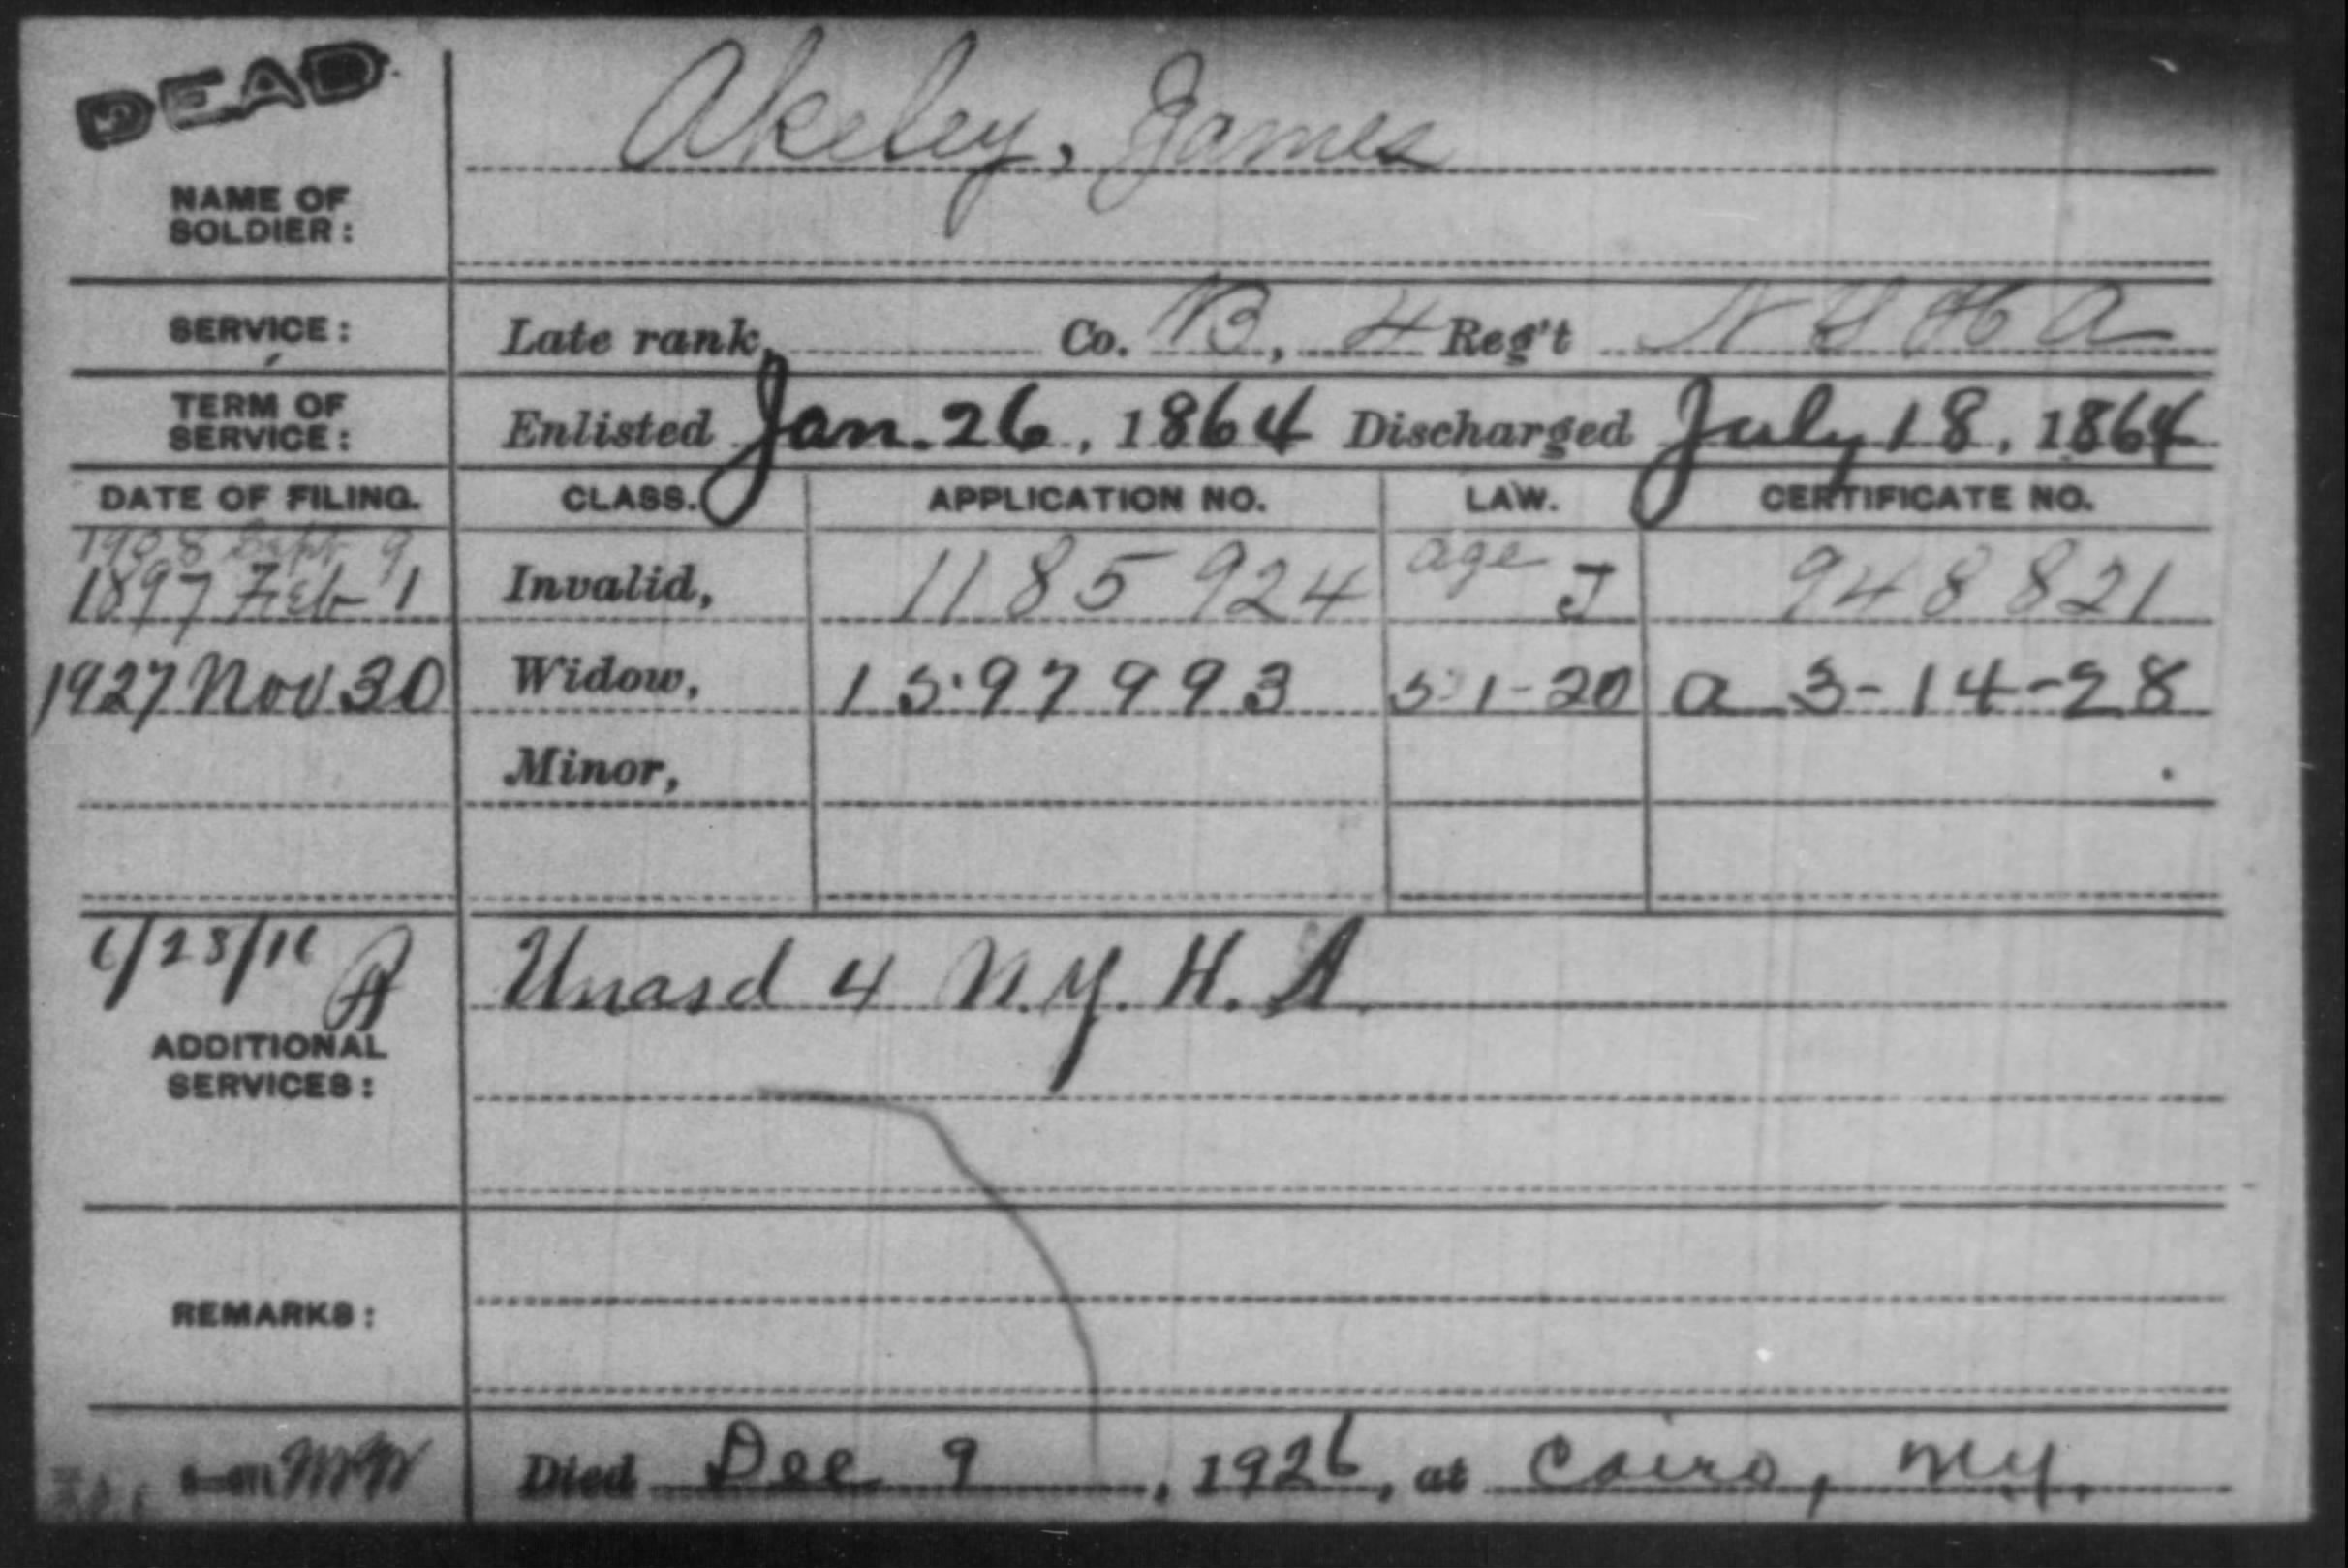 DEAD
Akeley, James
NAME OF
SOLDIER:
SERVICE: Late rank, Co. B, 4 Reg't N Y H A
TERM OF
SERVICE: Enlisted Jan. 26, 1864 Discharged July 18, 1864
DATE OF FILING. CLASS. APPLICATION NO. LAW. CERTIFICATE NO.
1908 Sept 9 age
1897 Feb 1 Invalid, 1185924 J 948821
1927 Nov 30 Widow, 1597993 5-1-20 a 3-14-28
Minor,
Unasd 4 N.Y. H. A
ADDITIONAL
SERVICES:
REMARKS:
Died Dec 9, 1926, at Cairo, NY.